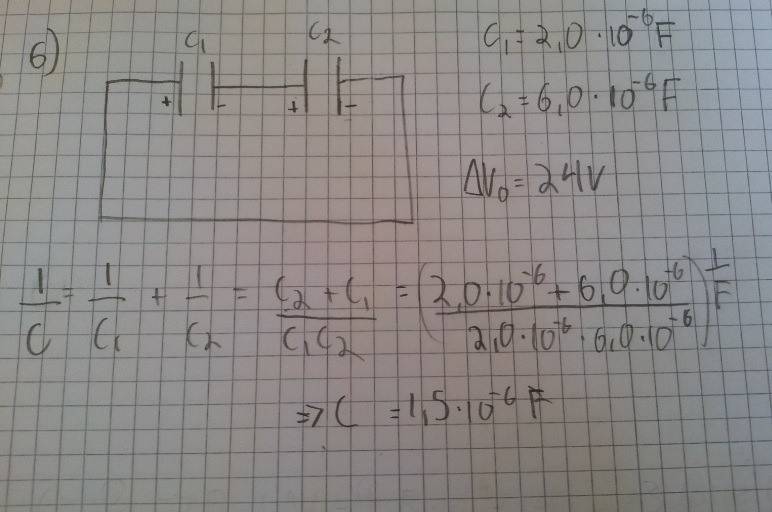 6)
C₁ C₂
+ - + -
C₁ = 2,0 · 10⁻⁶ F
C₂ = 6,0 · 10⁻⁶ F
ΔV₀ = 24V
1/C = 1/C₁ + 1/C₂ = (C₂ + C₁)/(C₁C₂) = ((2,0 · 10⁻⁶ + 6,0 · 10⁻⁶)/(2,0 · 10⁻⁶ · 6,0 · 10⁻⁶)) 1/F
=> C = 1,5 · 10⁻⁶ F